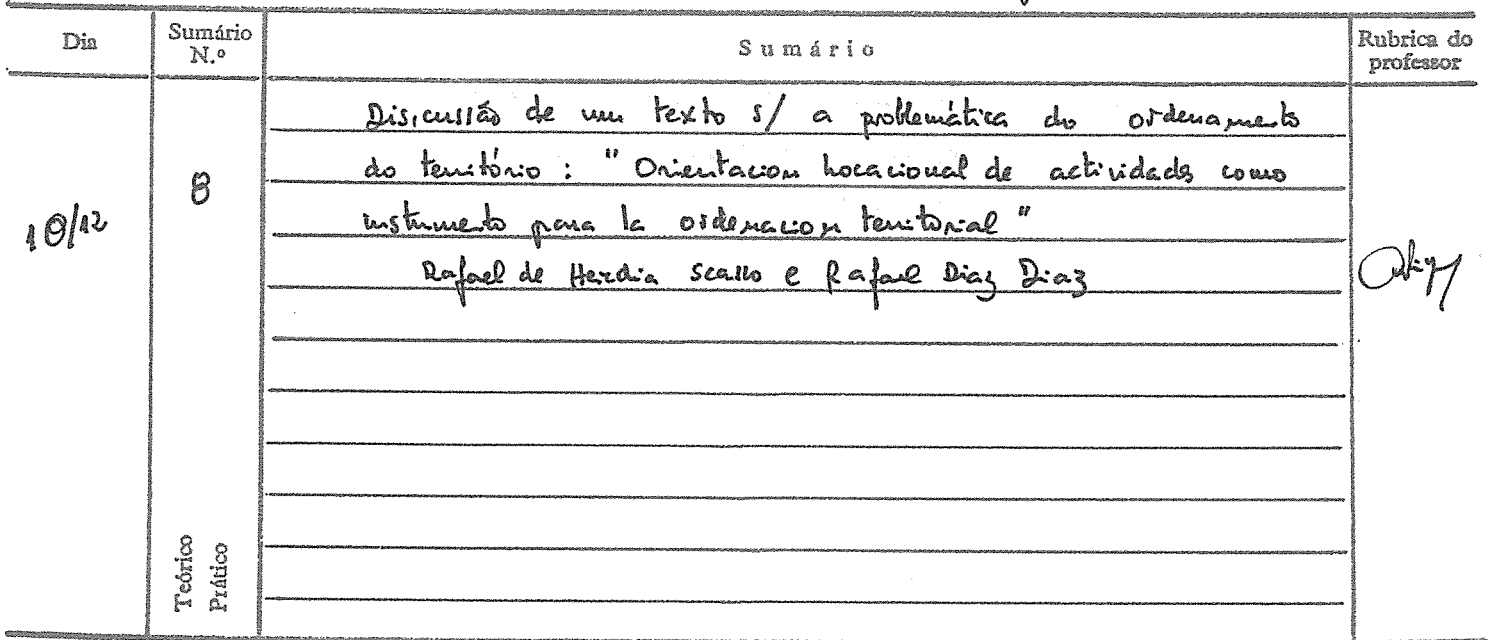 Dia
Sumário N.º
Sumário
Rubrica do professor
10/12
8
Discussão de um texto s/ a problemática do ordenamento
do território : " Orientacion Locacional de actividades como
instrumento para la ordenacion territorial "
Rafael de Heredia Scasso e Rafael Diaz Diaz
Teórico
Prático